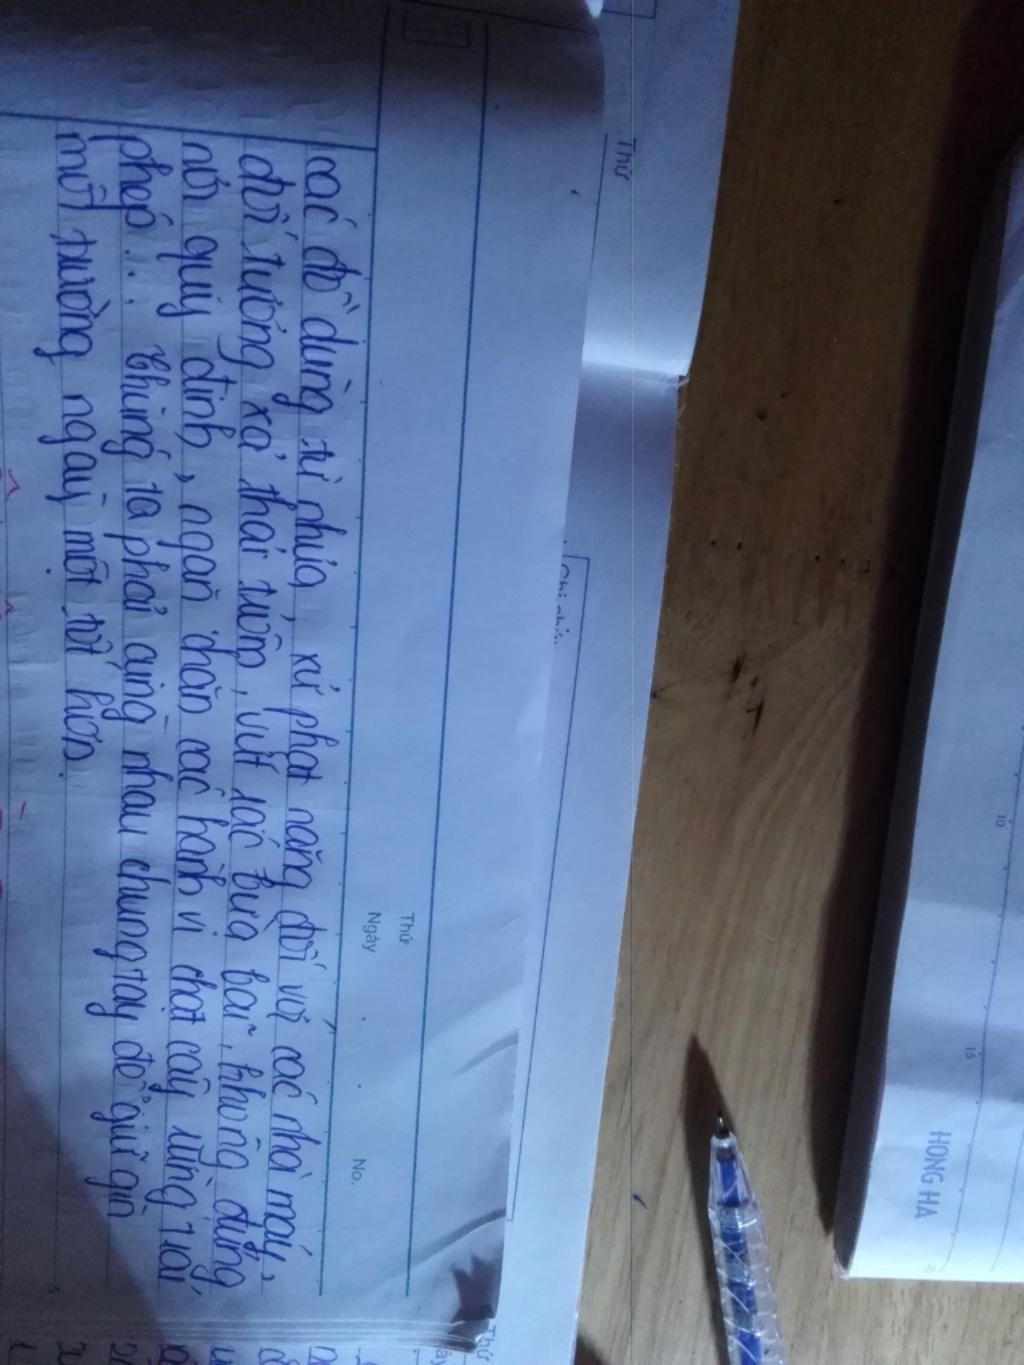 Thứ
Thứ
Ngày
No.
các đồ dùng từ nhựa, xử phạt nặng đối với các nhà máy,
đối tượng xả thải trộm, vứt rác bừa bãi, không đúng
nơi quy định, ngăn chặn các hành vi chặt cây rừng trái
phép... Chúng ta phải cùng nhau chung tay để giữ gìn
môi trường ngày một tốt hơn.
5
HONG HA
10
15
Thứ